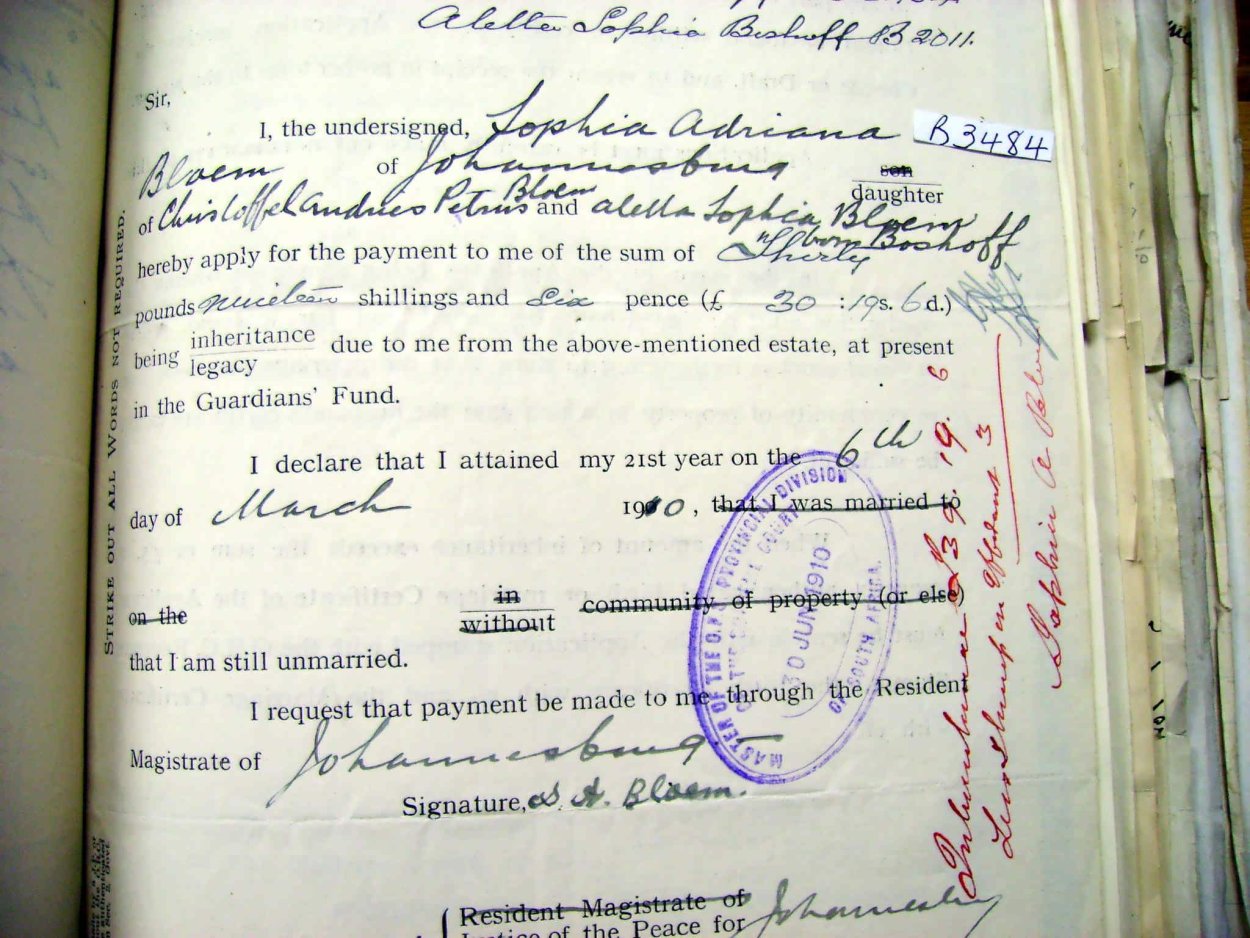 Aletta Sophia Boshoff B 2011.
Sir,
I, the undersigned, Sophia Adriana
B3484
Bloem of Johannesburg son
daughter
of Christoffel Andries Petrus Bloem and Aletta Sophia Bloem
born Boshoff
hereby apply for the payment to me of the sum of Thirty
pounds nineteen shillings and six pence (£ 30 : 19s. 6 d.)
being inheritance
legacy
due to me from the above-mentioned estate, at present
in the Guardians' Fund.
I declare that I attained my 21st year on the 6th
day of March 1910, that I was married to
on the in
without
community of property (or else)
that I am still unmarried.
I request that payment be made to me through the Resident
Magistrate of Johannesburg
Signature, S. A. Bloem.
Resident Magistrate of
Justice of the Peace for Johannesburg
STRIKE OUT ALL WORDS NOT REQUIRED.
MASTER OF THE O.F.S. PROVINCIAL DIVISION
OF THE SUPREME COURT
30 JUN 1910
OF SOUTH AFRICA.
Inheritance £30. 19. 6
Less Stamp on 3
Sophia A Bloem